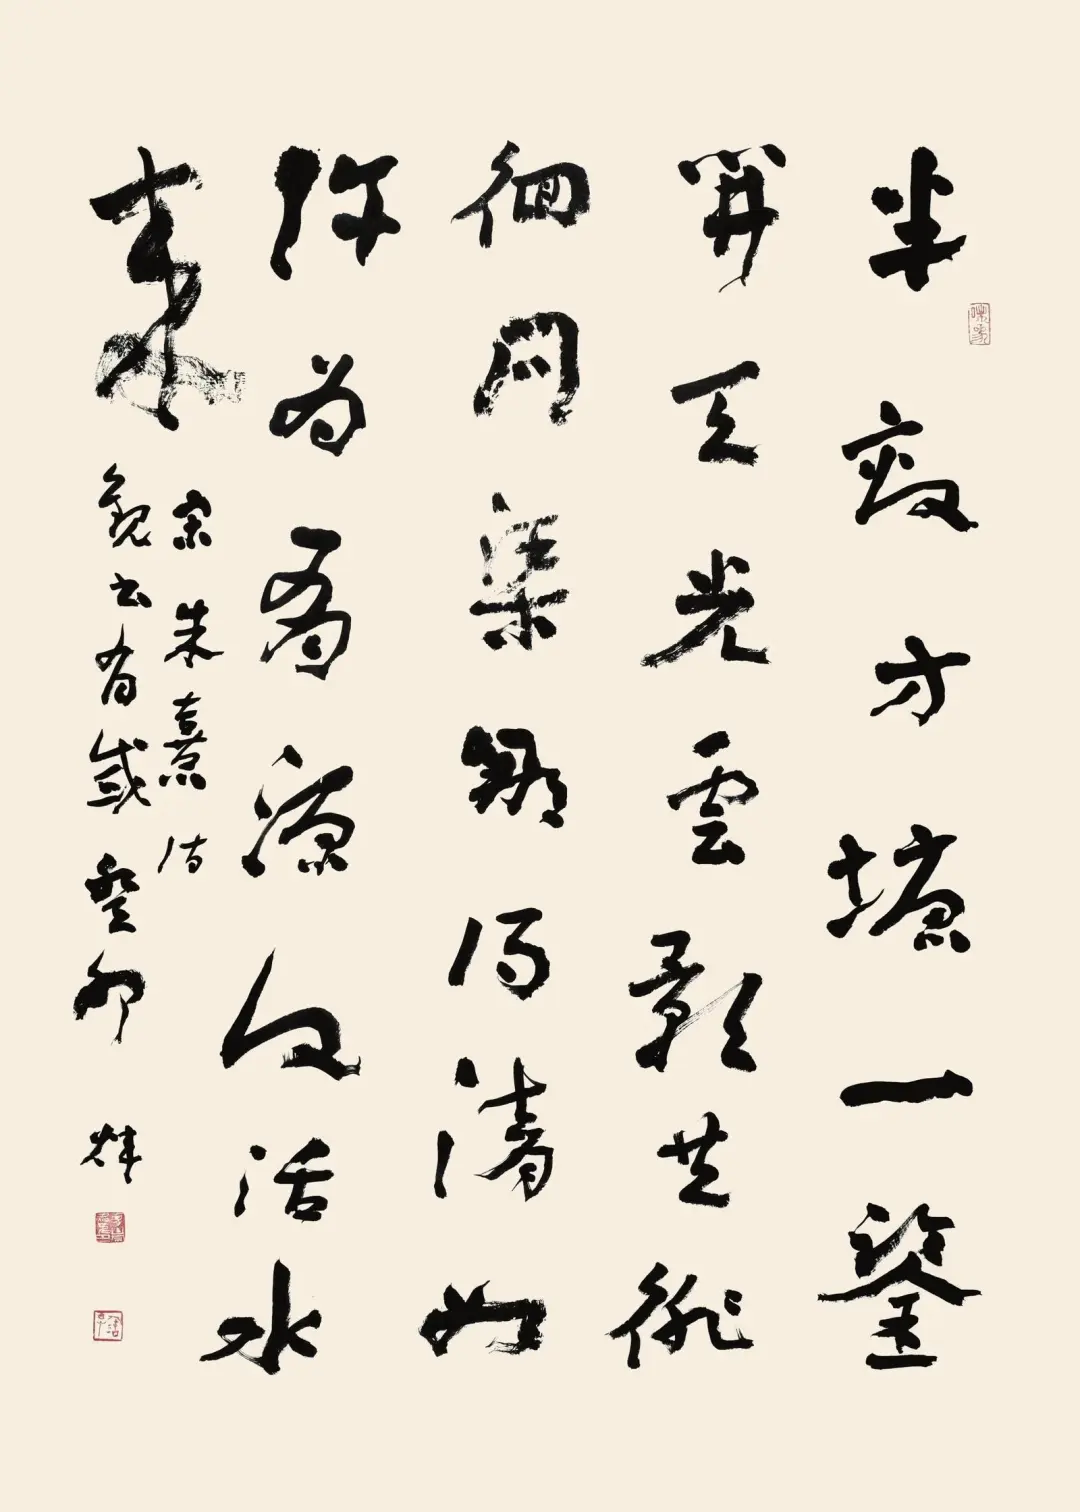 半畝方塘一鑒
開天光雲影共徘
徊问渠那得清如
许为有源头活水
来
宋朱熹诗
观书有感癸卯